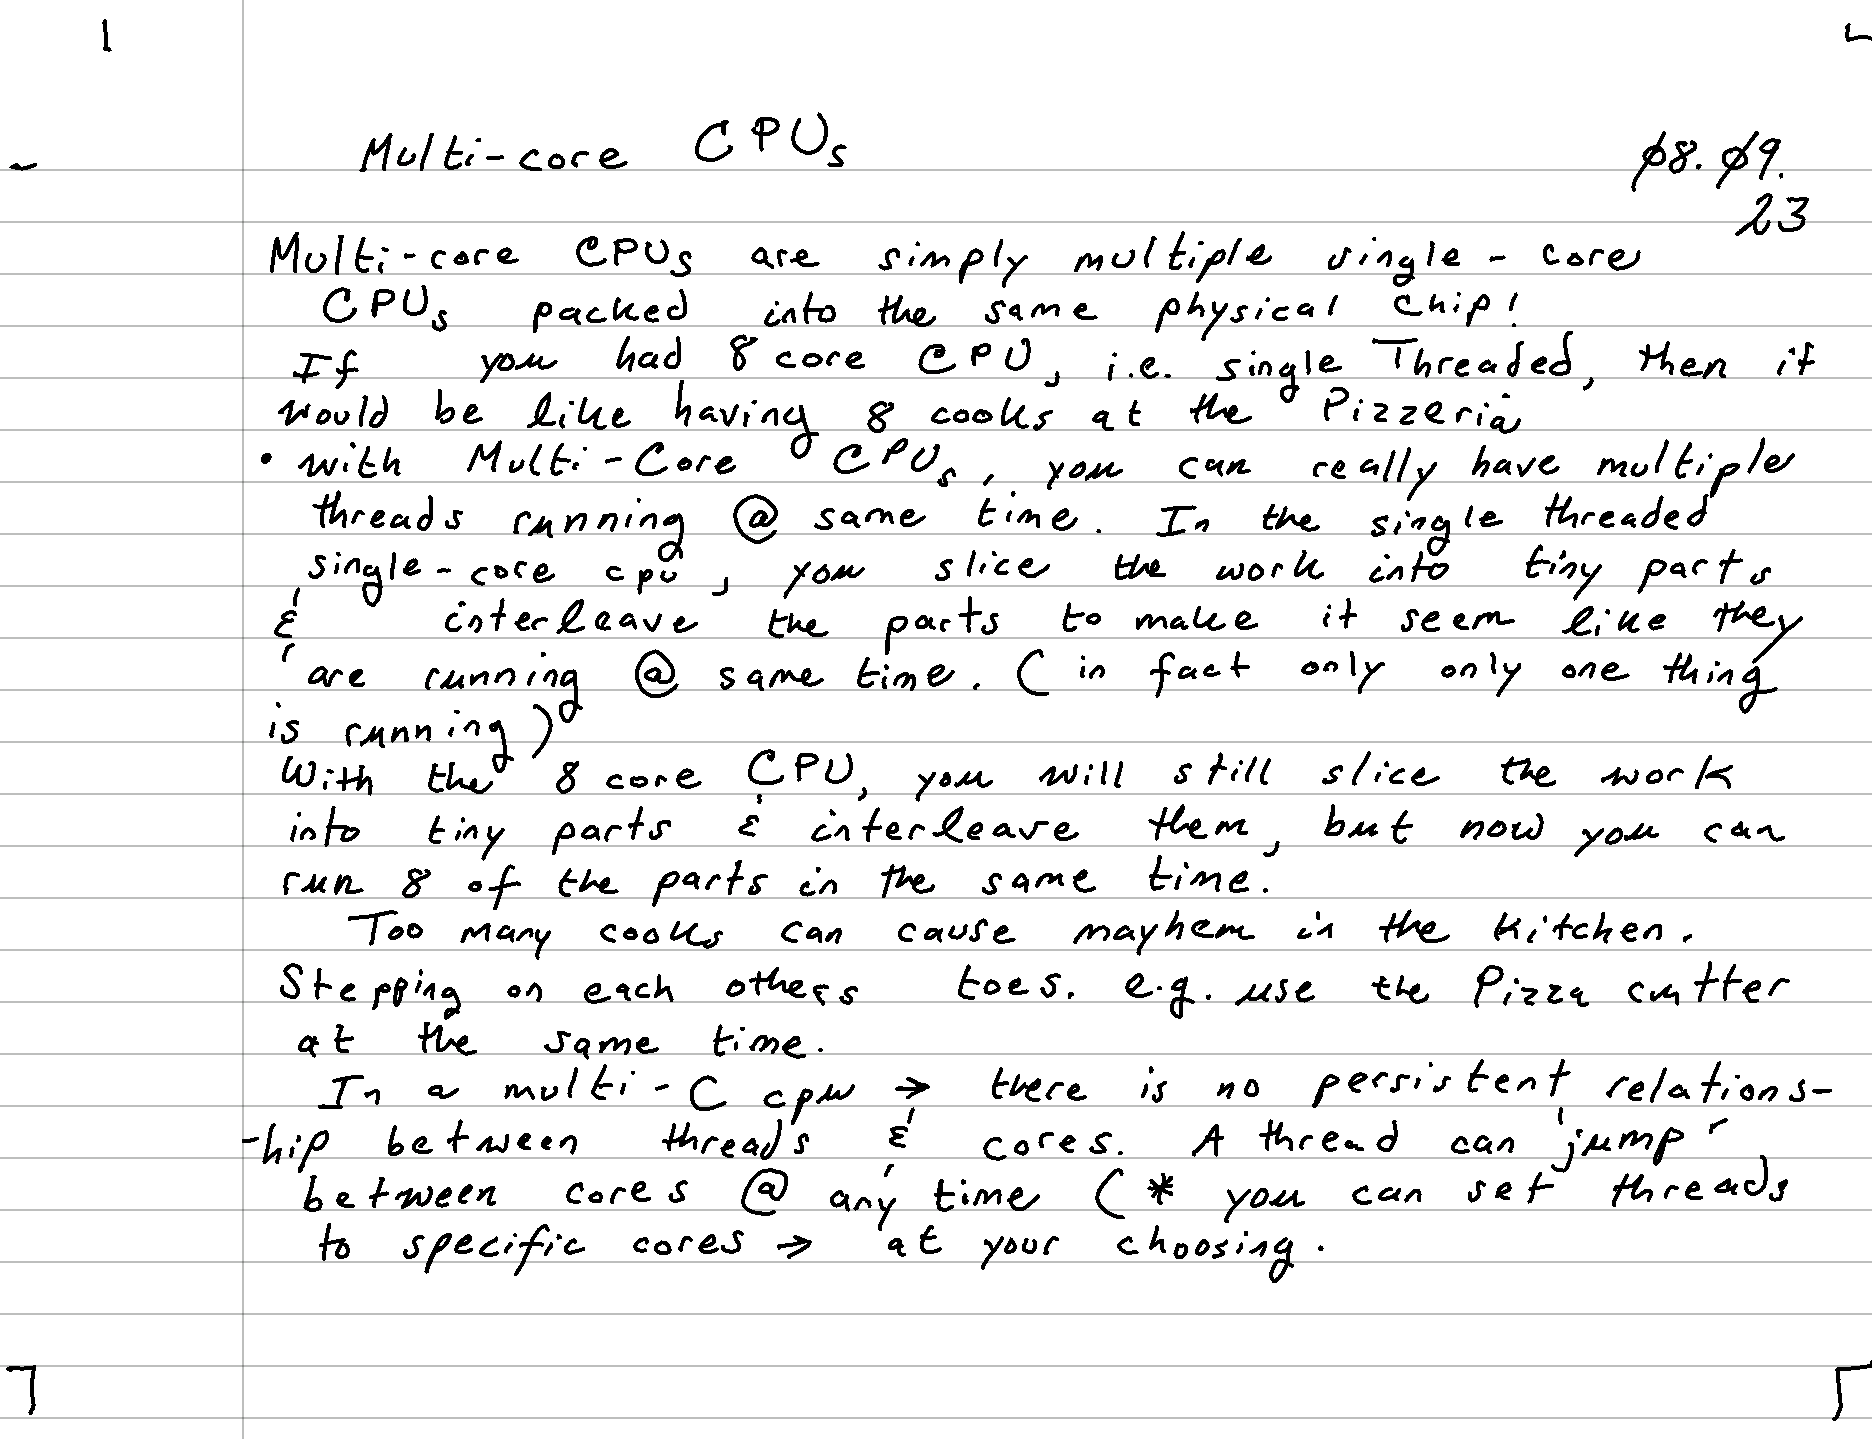 Multi-core CPUs
08.09.
23
Multi-core CPUs are simply multiple single-core
CPUs packed into the same physical chip!
If you had 8 core CPU, i.e. single Threaded, then it
would be like having 8 cooks at the Pizzeria
• with Multi-Core CPUs, you can really have multiple
threads running @ same time. In the single threaded
single-core cpu, you slice the work into tiny parts
& interleave the parts to make it seem like they
are running @ same time. (in fact only only one thing
is running)
With the 8 core CPU, you will still slice the work
into tiny parts & interleave them, but now you can
run 8 of the parts in the same time.
Too many cooks can cause mayhem in the kitchen.
Stepping on each others toes. e.g. use the Pizza cutter
at the same time.
In a multi-C cpu → there is no persistent relations-
-hip between threads & cores. A thread can 'jump'
between cores @ any time (* you can set threads
to specific cores → at your choosing.